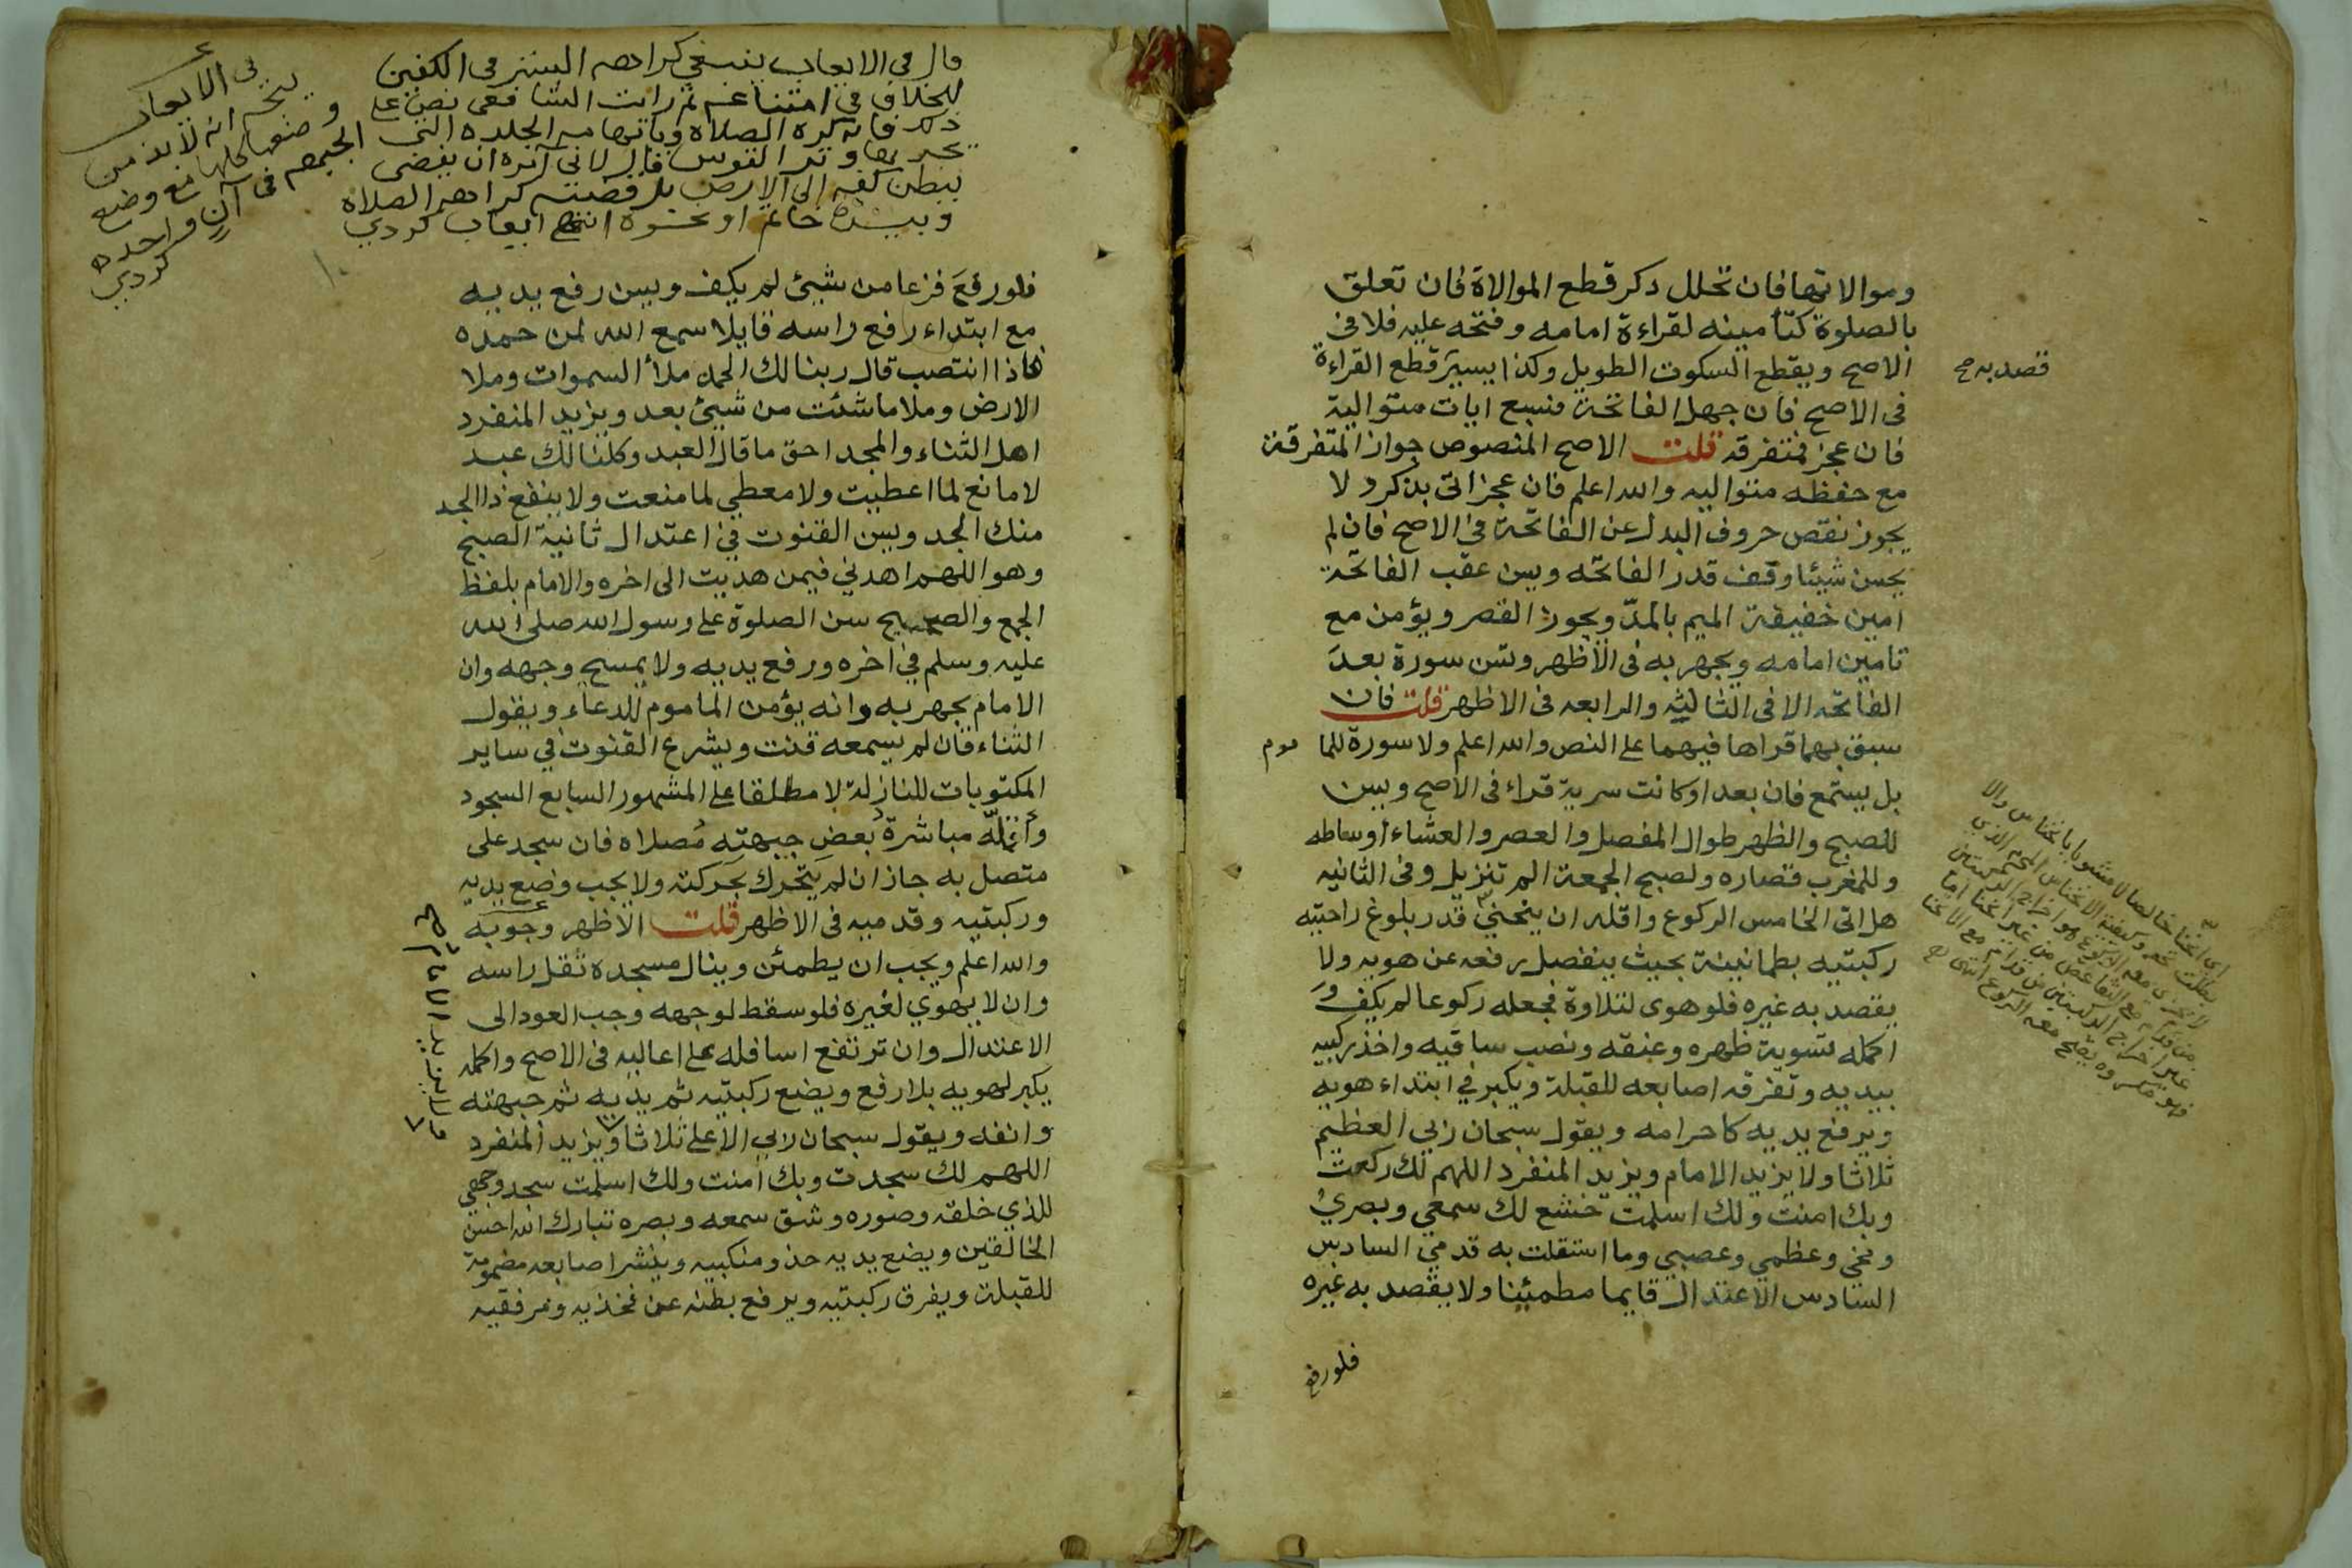 وموالاتها فان تخلل ذكر قطع الموالاة فان تعلق
بالصلوة كتأمينه لقراءة امامه وفتحه عليه فلا في
الاصح ويقطع السكوت الطويل وكذا يسير قطع القراءة
قصد به صح
في الاصح فان جهل الفاتحة فسبع ايات متوالية
فان عجز فمتفرقه قلت الاصح المنصوص جواز المتفرقة
مع حفظه متواليه والله اعلم فان عجز اتى بذكر ولا
يجوز نقص حروف البدل عن الفاتحة في الاصح فان لم
يحسن شيئا وقف قدر الفاتحه ويسن عقب الفاتحة
امين خفيفة الميم بالمدّ ويجوز القصر ويؤمن مع
تامين امامه ويجهر به في الأظهر وتسن سورة بعد
الفاتحه الا في الثالثه والرابعه في الاظهر قلت فان
سبق بهما قراها فيهما على النص والله اعلم ولا سورة للما موم
بل يستمع فان بعد اوكانت سرية قراء في الاصح ويسن
للصبح والظهر طوال المفصل والعصر والعشاء اوساطه
وللمغرب قصاره ولصبح الجمعة الم تنزيل وفي الثانيه
هل اتى الخامس الركوع واقله ان ينحني قدر بلوغ راحتيه
ركبتيه بطمانينة بحيث ينفصل رفعه عن هويه ولا
يقصد به غيره فلو هوى لتلاوة فجعله ركوعا لم يكف و
اكمله تسوية ظهره وعنقه ونصب ساقيه واخذ ركبتيه
بيديه وتفرقه اصابعه للقبلة ويكبر في ابتداء هويه
ويرفع يديه كاحرامه ويقول سبحان ربي العظيم
ثلاثا ولا يزيد الامام ويزيد المنفرد اللهم لك ركعت
وبك امنت ولك اسلمت خشع لك سمعي وبصري
ومخي وعظمي وعصبي وما استقلت به قدمي السادس
السادس الاعتدال قايما مطمئنا ولا يقصد به غيره
فلو رفع
قال في الايعاب ينبغي كراهه الستر في الكفين
للخلاف في امتناعه ثم رايت الشافعي نص على
ذكر فانه كره الصلاة وبابهامه الجلده التي
يجر بها وتر القوس قال لاني آكره ان يفضي
ببطن كفه الى الارض بل قضيته كراهه الصلاة
وبيده خاتم او نحوه انتهى ايعاب كردي
في الايعاب
يتجه انه لا بد من
وضعها كلها مع وضع
الجبهه في آن واحده
كردي
فلو رفع فزعا من شيئ لم يكف ويسن رفع يديه
مع ابتداء رفع راسه قايلا سمع الله لمن حمده
فاذا انتصب قال ربنا لك الحمد ملأ السموات وملا
الارض وملا ما شئت من شيئ بعد ويزيد المنفرد
اهل الثناء والمجد احق ما قال العبد وكلنا لك عبد
لا مانع لما اعطيت ولا معطي لما منعت ولا ينفع ذا الجد
منك الجد ويسن القنوت في اعتدال ثانية الصبح
وهو اللهم اهدني فيمن هديت الى اخره والامام بلفظ
الجمع والصحيح سن الصلوة على رسول الله صلى الله
عليه وسلم في اخره ورفع يديه ولا يمسح وجهه وان
الامام يجهر به وانه يؤمن الماموم للدعاء ويقول
الثناء فان لم يسمعه قنت ويشرع القنوت في ساير
المكتوبات للنازلة لا مطلقا على المشهور السابع السجود
وأقلّه مباشرة بعض جبهته مصلاه فان سجد على
متصل به جاز ان لم يتحرك بحركته ولا يجب وضع يديه
وركبتيه وقدميه في الاظهر قلت الاظهر وجوبه
والله اعلم ويجب ان يطمئن وينال مسجده ثقل راسه
وان لا يهوي لغيره فلو سقط لوجهه وجب العود الى
الاعتدال وان ترتفع اسافله على اعاليه في الاصح واكمله
يكبر لهويه بلا رفع ويضع ركبتيه ثم يديه ثم جبهته
وانفه ويقول سبحان ربي الاعلى ثلاثا ويزيد المنفرد
ولا يزيد الامام صح
اللهم لك سجدت وبك امنت ولك اسلمت سجد وجهي
للذي خلقه وصوره وشق سمعه وبصره تبارك الله احسن
الخالقين ويضع يديه حذو منكبيه وينشر اصابعه مضمومة
للقبلة ويفرق ركبتيه ويرفع بطنه عن فخذيه ومرفقيه